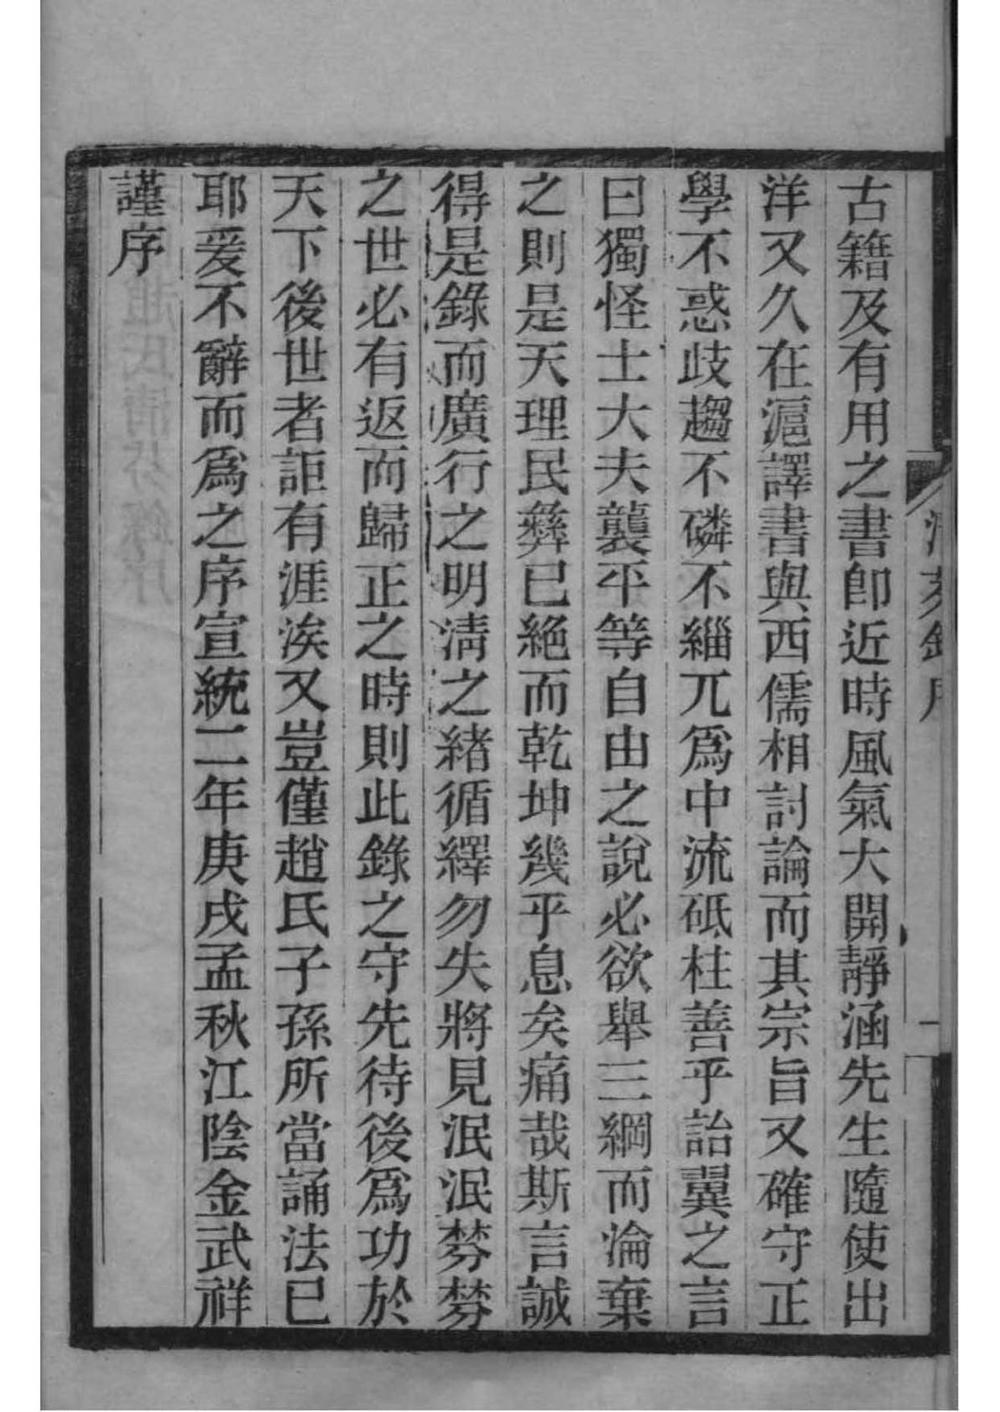 古籍及有用之書卽近時風氣大開靜涵先生隨使出
洋又久在滬譯書與西儒相討論而其宗旨又確守正
學不惑歧趨不磷不緇兀爲中流砥柱善乎詒翼之言
曰獨怪士大夫襲平等自由之說必欲舉三綱而淪棄
之則是天理民彝已絕而乾坤幾乎息矣痛哉斯言誠
得是錄而廣行之明淸之緒循繹勿失將見泯泯棼棼
之世必有返而歸正之時則此錄之守先待後爲功於
天下後世者詎有涯涘又豈僅趙氏子孫所當誦法已
耶爰不辭而爲之序宣統二年庚戌孟秋江陰金武祥
謹序